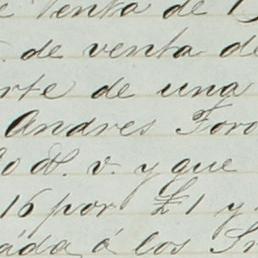 e Venta de D
. de venta de
rte de una
Andres Foro
do D. v. y que
16 por £1 y
áda á los Sr